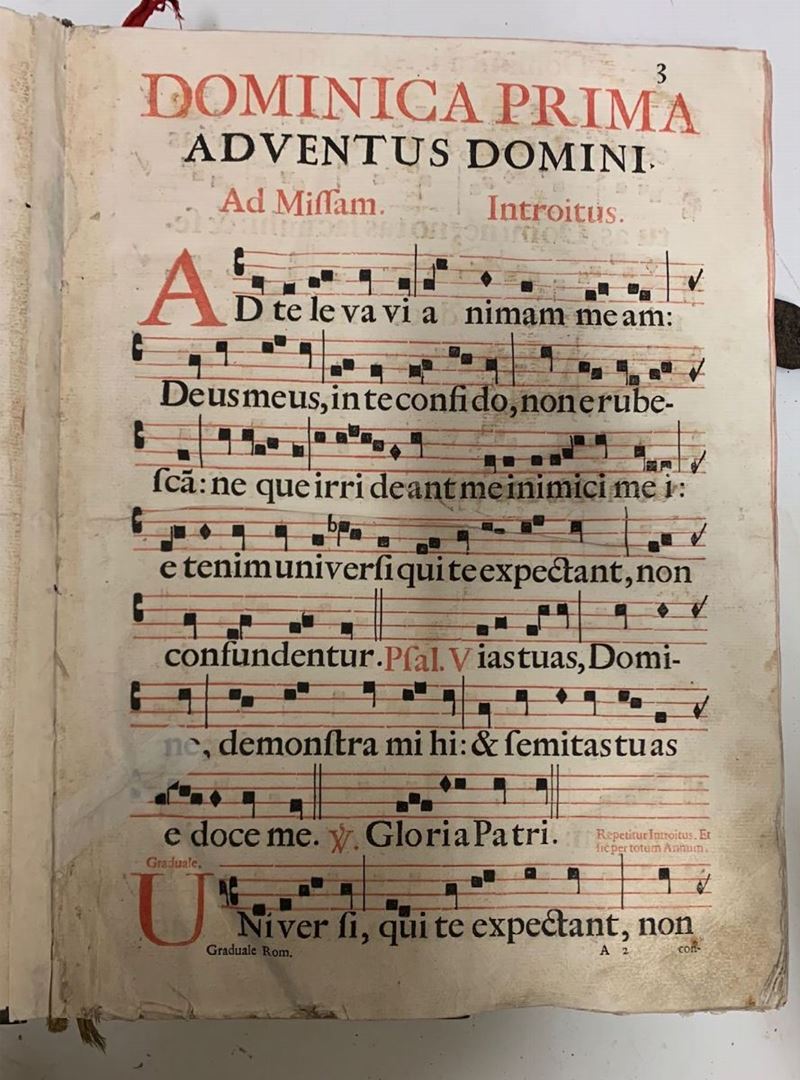 3
DOMINICA PRIMA
ADVENTUS DOMINI.
Ad Miſſam. Introitus.
AD te le va vi a nimam me am:
Deus meus, in te confi do, non e rube-
ſcã: ne que irri de ant me inimici me i:
e tenim univerſi qui te expectant, non
confundentur. Pſal. Vias tuas, Domi-
ne, demonſtra mi hi: & ſemitas tu as
e doce me. ℣. Gloria Patri. Repetitur Introitus. Et
ſic per totum Annum.
Graduale.
UNiver ſi, qui te expectant, non
Graduale Rom. A 2 con-